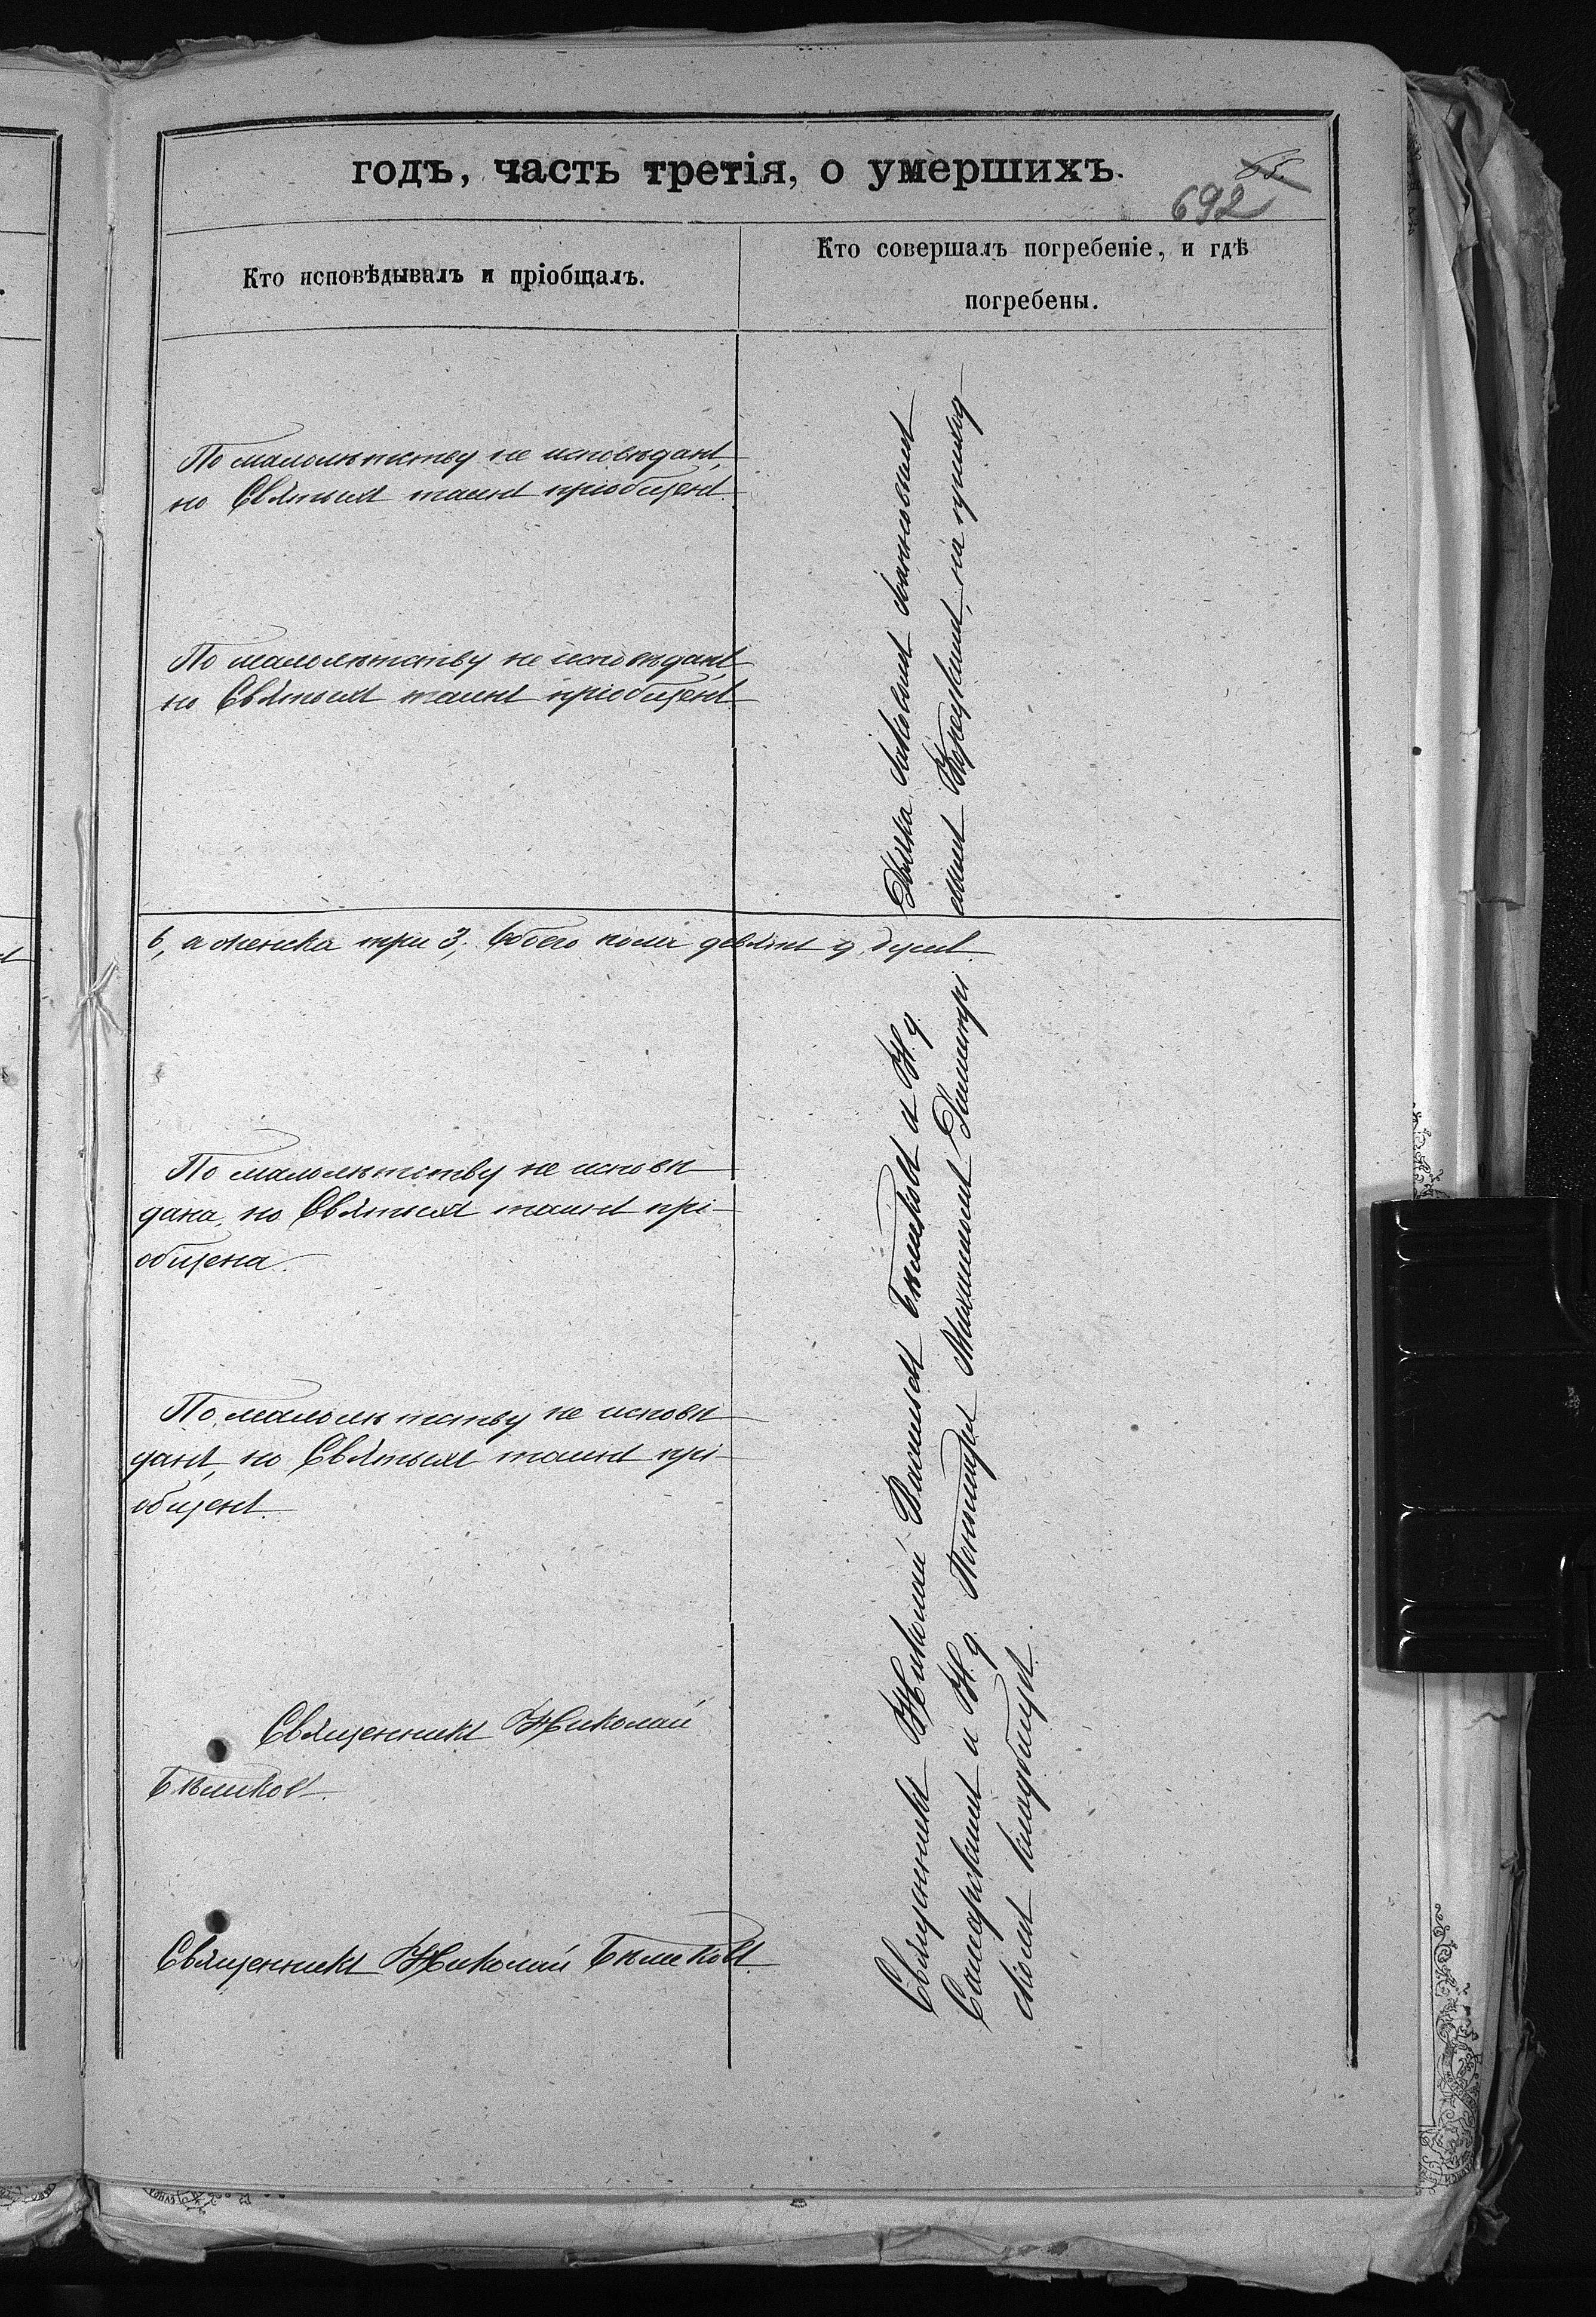 годъ, часть третія, о умершихъ.
65
692
Кто исповѣдывалъ и пріобщалъ.
Кто совершалъ погребеніе, и гдѣ
погребены.
По малолѣтству не исповѣданъ,
но Святыхъ таинъ пріобщенъ.
По малолѣтству не исповѣданъ,
но Святыхъ таинъ пріобщенъ.
Іоанновымъ
на приход
6, а женска три 3; Обоего пола девять 9 душъ.
По малолѣтству не исповѣ
дана, но Святыхъ таинъ прі-
общена.
По малолѣтству не исповѣ
данъ, но Святыхъ таинъ прі-
общенъ.
Священникъ Николай
Бѣликовъ.
Священникъ Николай Бѣликовъ
Священникъ Николай Васильевъ Бѣликовъ и И. д.
и И. д. Псаломщ Михаиломъ Димитрі
кладбищѣ.